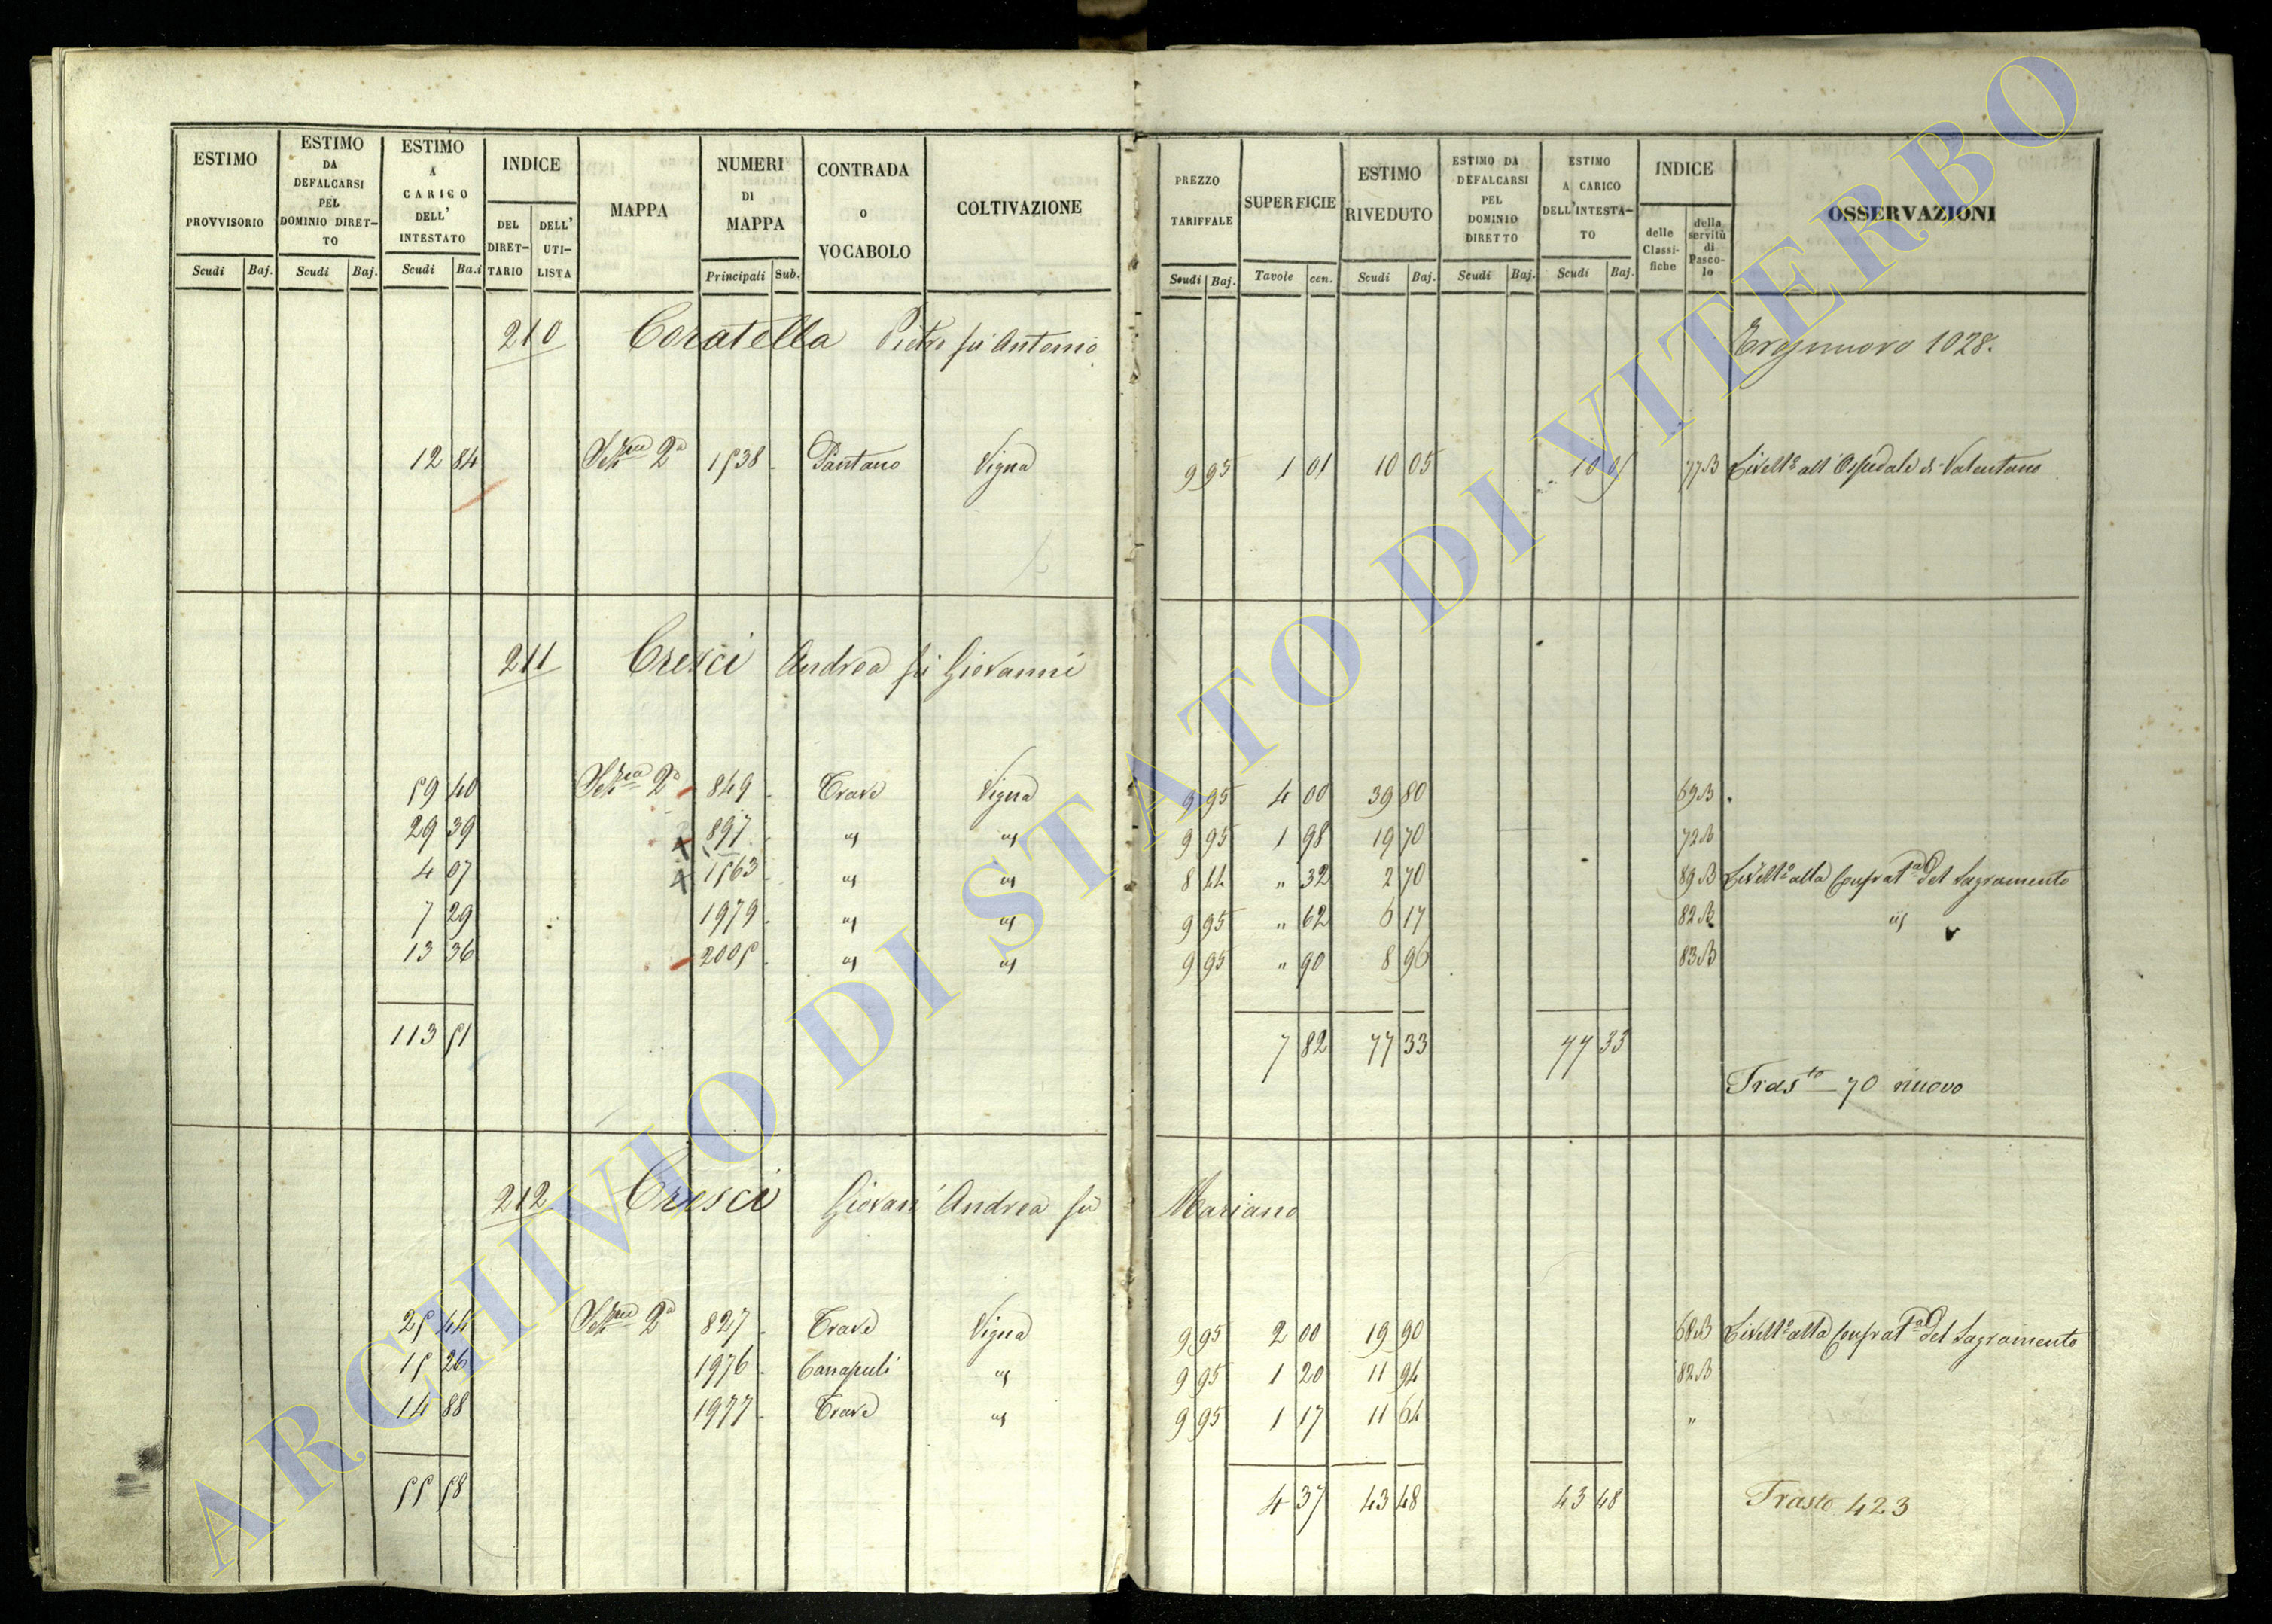 ESTIMO PROVVISORIO Scudi Baj.
ESTIMO DA DEFALCARSI PEL DOMINIO DIRETTO Scudi Baj.
ESTIMO A CARICO DELL' INTESTATO Scudi Ba.i
INDICE DEL DIRETTARIO DELL' UTILISTA
MAPPA
NUMERI DI MAPPA Principali Sub.
CONTRADA O VOCABOLO
COLTIVAZIONE
PREZZO TARIFFALE Scudi Baj.
SUPERFICIE Tavole cen.
ESTIMO RIVEDUTO Scudi Baj.
ESTIMO DA DEFALCARSI PEL DOMINIO DIRETTO Scudi Baj.
ESTIMO A CARICO DELL'INTESTATO Scudi Baj.
INDICE delle Classifiche della servitù di Pascolo
OSSERVAZIONI
210 Coratella Pietro fu Antonio
1028.
12 84 2a 1538 Pantano Vigna 9 95 1 01 10 05 10 05 77 B Livello all'Ospedale di Valentano
211 Cresci Andrea fu Giovanni
59 40 2a 849 Trave Vigna 9 95 4 00 39 80 69 B
29 39 897 " " 9 95 1 98 19 70 72 B
4 07 1563 " " 8 44 " 32 2 70 89 B Livello alla Confrata del Sagramento
7 29 1979 " " 9 95 " 62 6 17 82 B "
13 36 2005 " " 9 95 " 90 8 96 83 B
113 51 7 82 77 33 77 33
Trasto 70 nuovo
212 Cresci Giovan Andrea fu Mariano
25 44 2a 827 Trave Vigna 9 95 2 00 19 90 68 B Livello alla Confrata del Sagramento
15 26 1976 Canapuli " 9 95 1 20 11 94 82 B
14 88 1977 Trave " 9 95 1 17 11 64 "
55 58 4 37 43 48 43 48 Trasto 423
ARCHIVIO DI STATO DI VITERBO